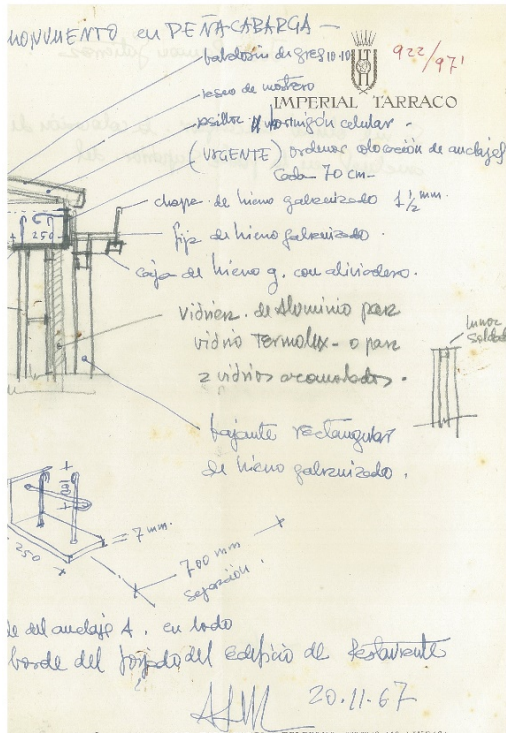 MONUMENTO en PEÑA-CABARGA -
baldosín de gres 10.10
922/97'
IMPERIAL TARRACO
hormigón celular -
(URGENTE) ordenar colocación de anclajes
Cada 70 cm-
chapa de hierro galvanizado 1 ½ mm.
fija de hierro galvanizado.
caja de hierro g. con aliviadero.
250
vidriera de Aluminio para
vidrio Termolux - o para
2 vidrios acomolados.
bajante rectangular
de hierro galvanizado.
7 mm.
250
700 mm
separación.
de del anclaje A. en todo
borde del forjado del edificio de Restaurante
20.11.67